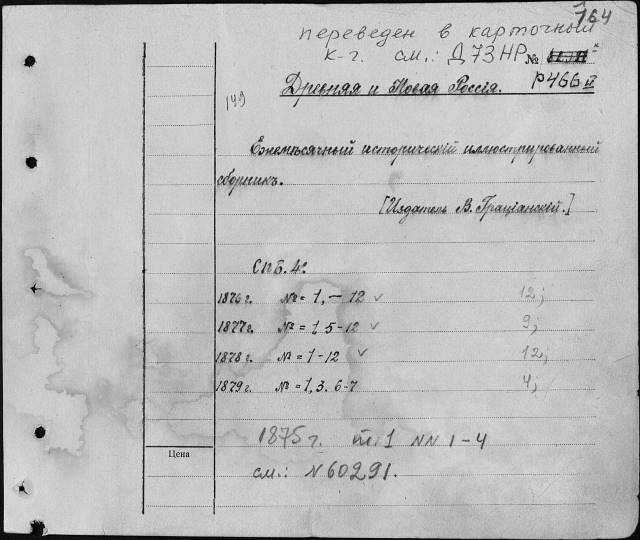 164
переведен в карточный
к-г. см.: Д73НР №
Р466
149
Древняя и Новая Россія.
Ежемѣсячный историческій иллюстрированный
сборникъ.
[Издатель В. Граціанскій.]
СПБ. 4º
1876 г. № = 1, — 12 ✓ 12;
1877 г. № = 1, 5-12 ✓ 9;
1878 г. № = 1-12 ✓ 12;
1879 г. № = 1, 3. 6-7 4;
1875 г. т. 1 NN 1-4
Цена
см.: N 60291.